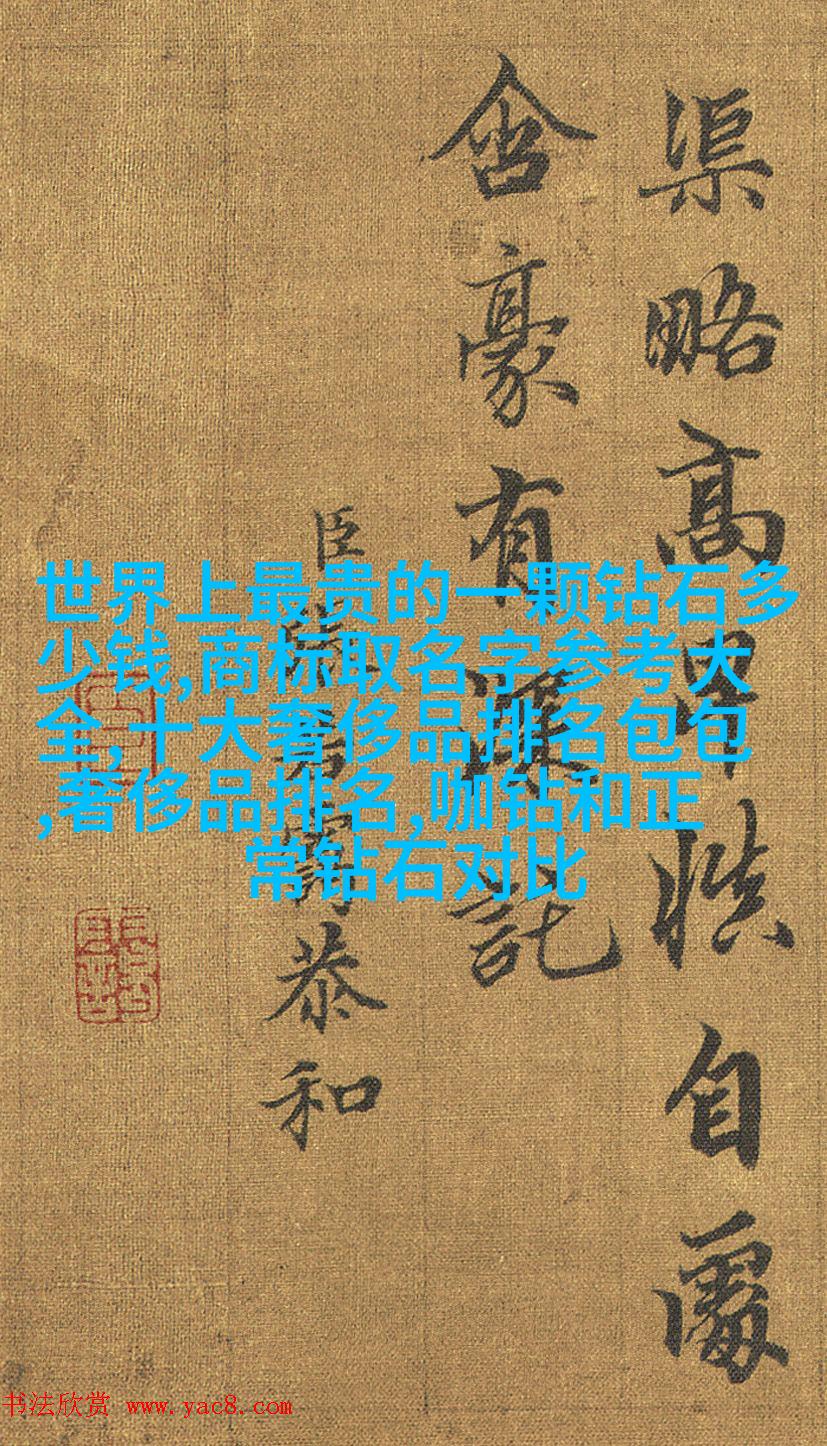 渠略高卑慎自處
含豪有深託
臣恭和
世界上最贵的一颗钻石多
少钱,商标取名字参考大
全,十大奢侈品排名包包
,奢侈品排名,咖钻和正
常钻石对比
书法欣赏 www.yac8.com